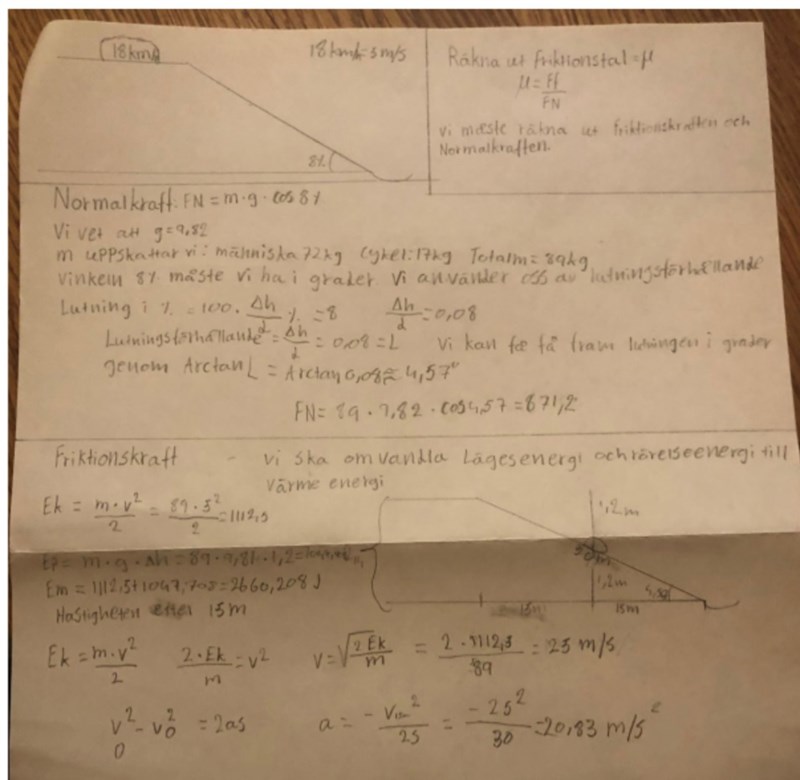 18km/h
18km/h=5m/s
8%
Räkna ut friktionstal=μ
μ=Ff/FN
Vi måste räkna ut friktionskraften och
Normalkraften.
Normalkraft: FN=m·g·cos8%
Vi vet att g=9,82
m uppskattar vi: människa 72kg Cykel:17kg Totalm=89kg
Vinkeln 8% måste vi ha i grader. Vi använder oss av lutningsförhållande
Lutning i % =100·Δh/d % =8 Δh/d=0,08
Lutningsförhållande=Δh/d=0,08=L Vi kan få fram lutningen i grader
genom Arctan L = Arctan 0,08≈4,57°
FN=89·9,82·cos4,57=871,2
Friktionskraft - Vi ska omvandla Lägesenergi och rörelseenergi till
Värme energi
Ek = m·v²/2 = 89·5²/2 =1112,5
1,2m
Ep = m·g·Δh=89·9,81·1,2=
30m
1,2m
Em=1112,5+1047,708=2660,208J
15m
Hastigheten efter 15m
Ek=m·v²/2 2·Ek/m=v² v=√2Ek/m = 2·1112,5/89 =25 m/s
v²-v₀² =2as a= -V₁₅ₘ²/25 = -25²/30 =20,83 m/s²
0